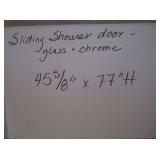 Sliding Shower door -
glass + chrome
45 5/8" x 77" H